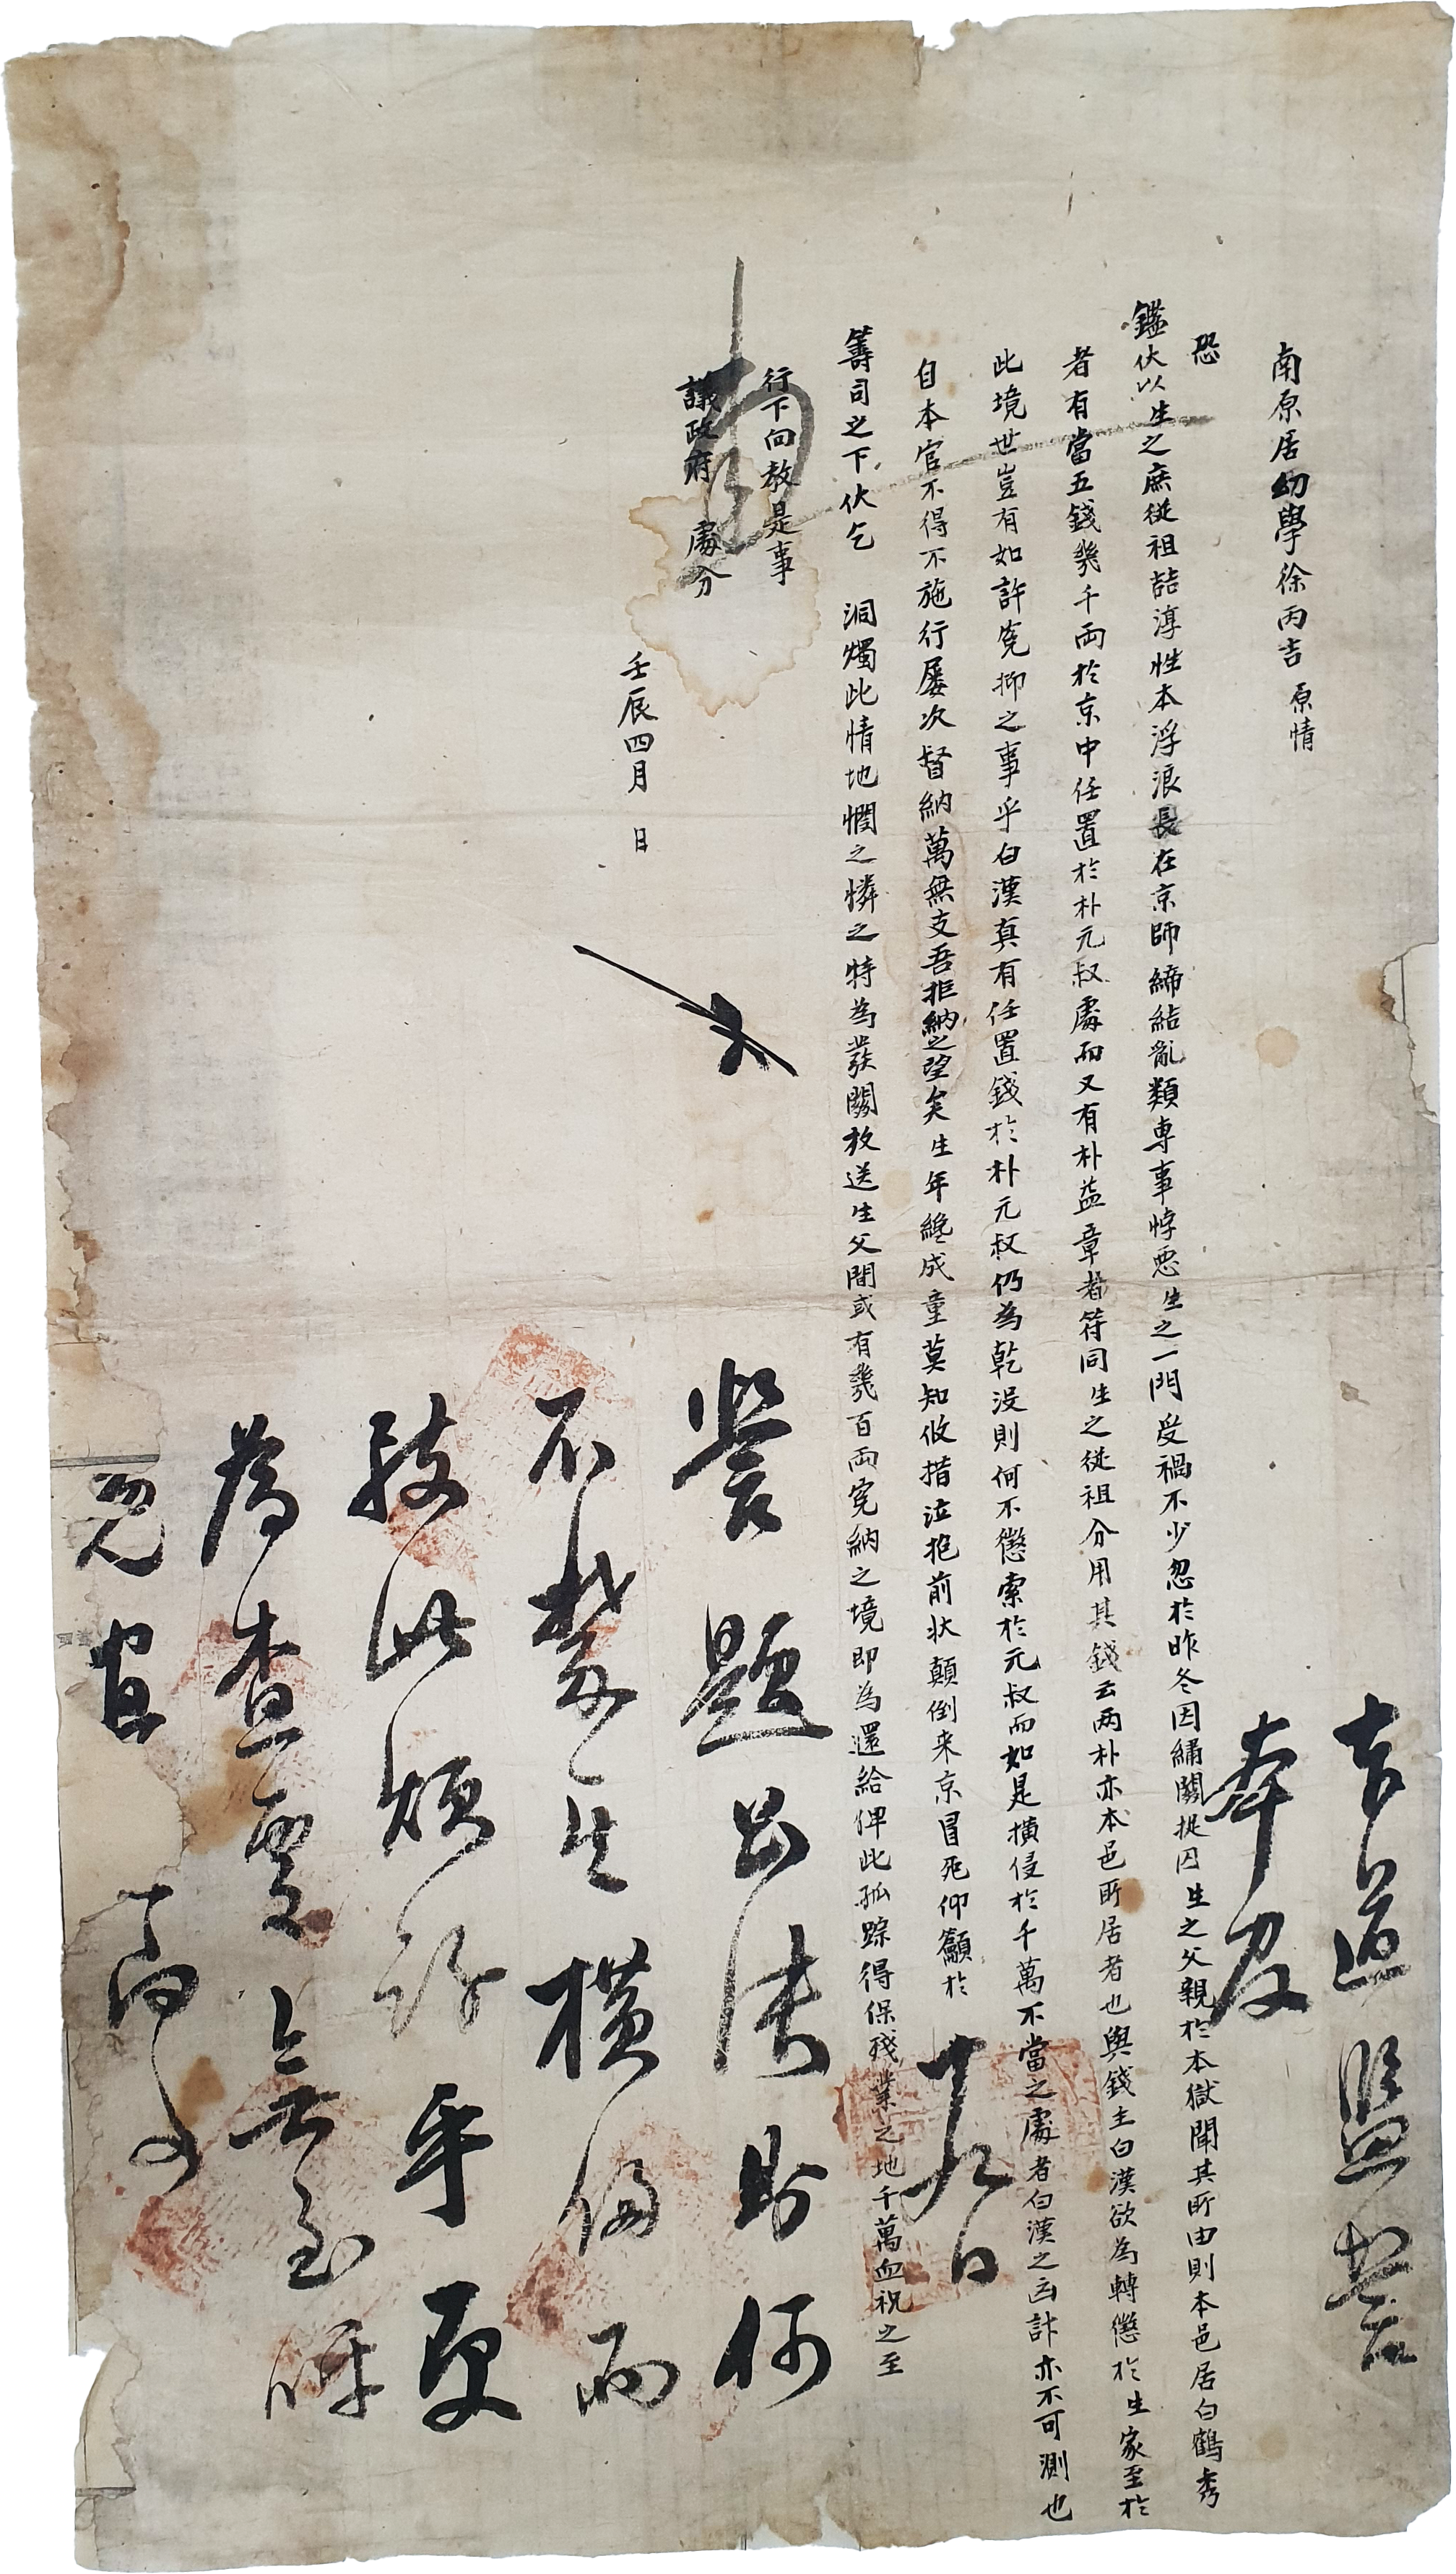 南原居幼學徐丙吉 原情
恐
鑑伏以生之庶從祖喆淳性本浮浪長在京師締結亂類專事悖惡生之一門受禍不少忽於昨冬因繡關捉囚生之父親於本獄聞其所由則本邑居白鶴秀
者有當五錢幾千兩於京中任置於朴元叔處而又有朴益章者符同生之從祖分用其錢云兩朴亦本邑所居者也與錢主白漢欲為轉懲於生家至於
此境世豈有如許寃抑之事乎白漢真有任置錢於朴元叔仍為乾沒則何不懲索於元叔而如是橫侵於千萬不當之處者白漢之凶計亦不可測也
自本官不得不施行屢次督納萬無支吾拒納之望矣生年纔成童莫知攸措泣抱前狀顛倒来京冒死仰籲於
籌司之下伏乞 洞燭此情地憫之憐之特為發關放送生父間或有幾百兩寃納之境即為還給俾此孤踪得保殘業之地千萬血祝之至
行下向教是事
議政府 處分
壬辰四月 日
題出法財何
不禁生橫侵而
致此煩訴乎更
為查實無至呼
寃宜
本道監營
卄九日